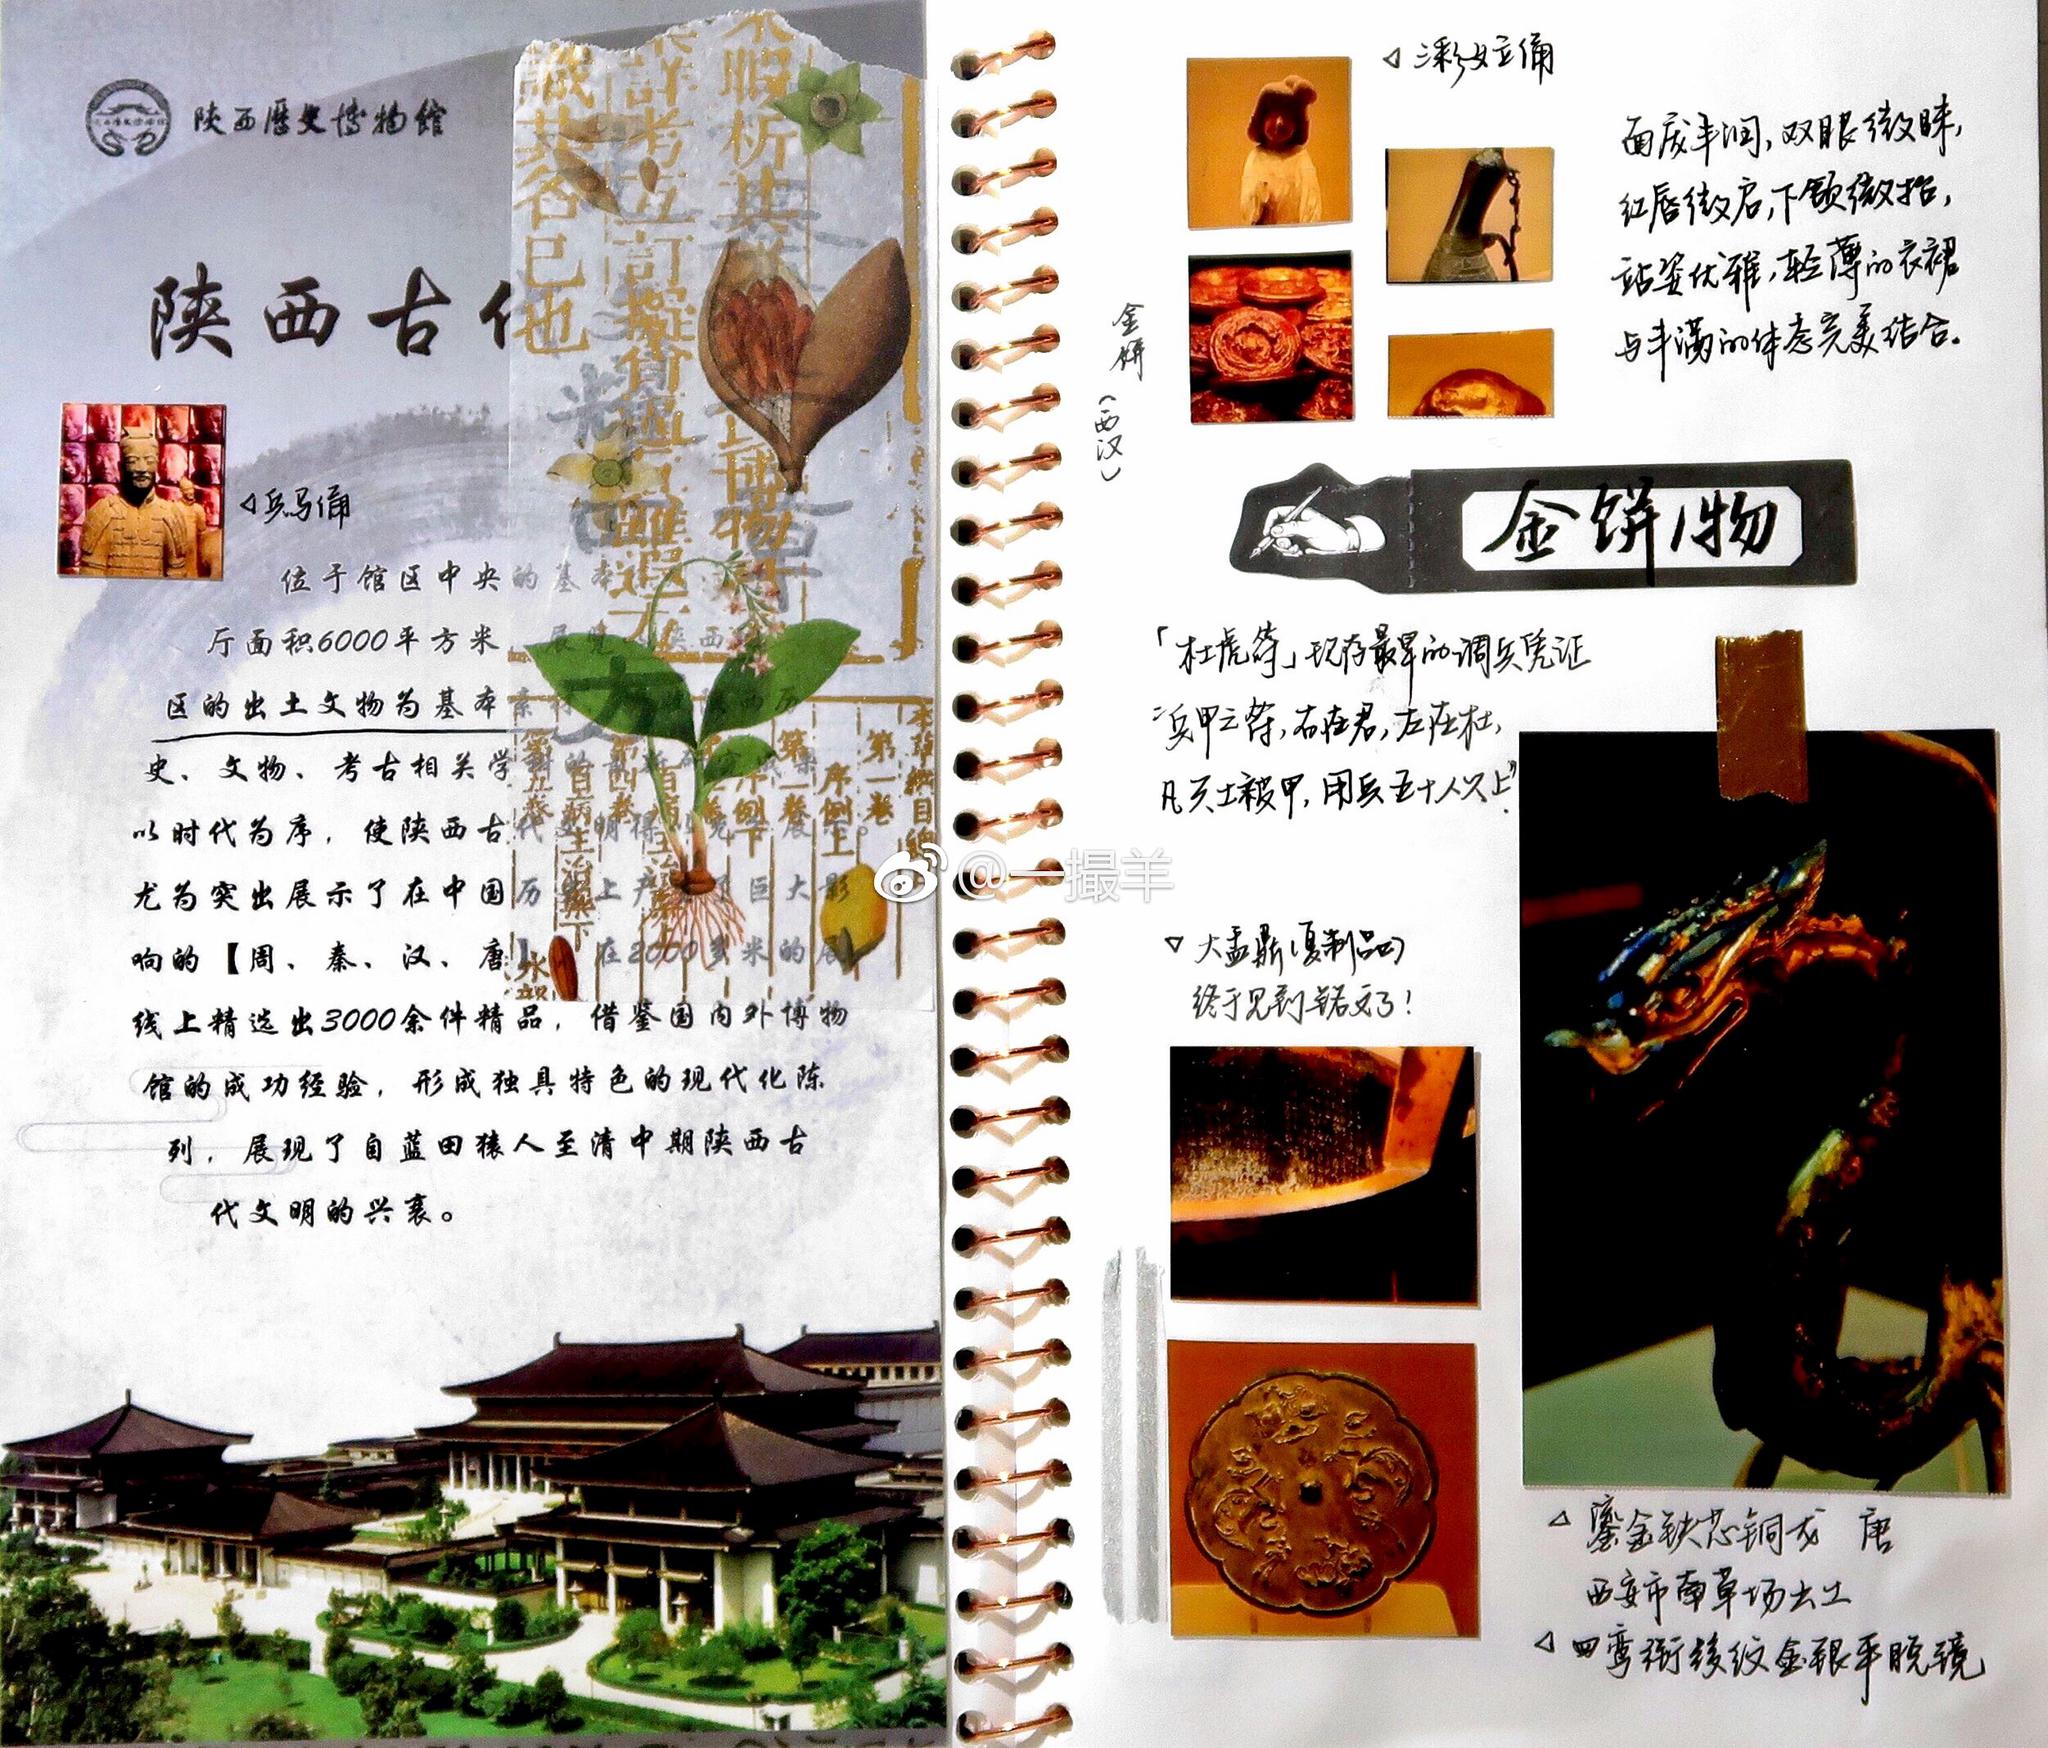 陕西历史博物馆
陕西古代
兵马俑
位于馆区中央的基本
厅面积6000平方米 展览 陕西
区的出土文物为基本素材
史、文物、考古相关学
以时代为序，使陕西古代文明得以 展示。
尤为突出展示了在中国历史上产生了巨大影
响的【周、秦、汉、唐】 在2000多米的展
线上精选出3000余件精品，借鉴国内外博物
馆的成功经验，形成独具特色的现代化陈
列，展现了自蓝田猿人至清中期陕西古
代文明的兴衰。
服析其
詳考互訂擬
識其名已也
本草綱目
第一卷
序例上
三彩女立俑
面庞丰润，双眼微眯，
红唇微启，下颌微抬，
站姿优雅，轻薄的衣裙
与丰满的体态完美结合。
金饼
（西汉）
金饼 博物
「杜虎符」现存最早的调兵凭证
“兵甲之符，右在君，左在杜，
凡兴士被甲，用兵五十人以上”
@一撮羊
大盂鼎（复制品）
终于见到铭文了！
鎏金铁芯铜龙 唐
西安市南草场出土
四鸾衔绶纹金银平脱镜